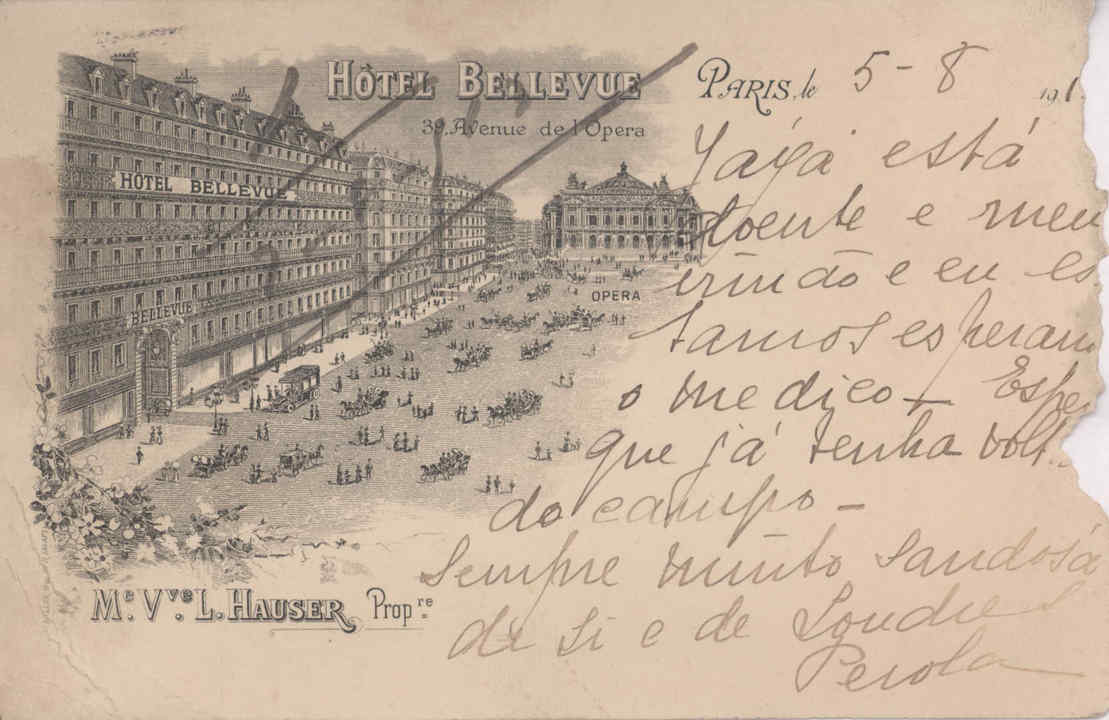 HÔTEL BELLEVUE
39, Avenue de l'Opera
PARIS, le 5-8 191
HÔTEL BELLEVUE
BELLEVUE
OPERA
Yáyá está
doente e meu
irmão e eu es
tamos esperan
o medico — Espe
que já tenha volt
do campo —
Sempre muito saudosa
de si e de Londres
Perola
Me. Vve. L. HAUSER, Propre.